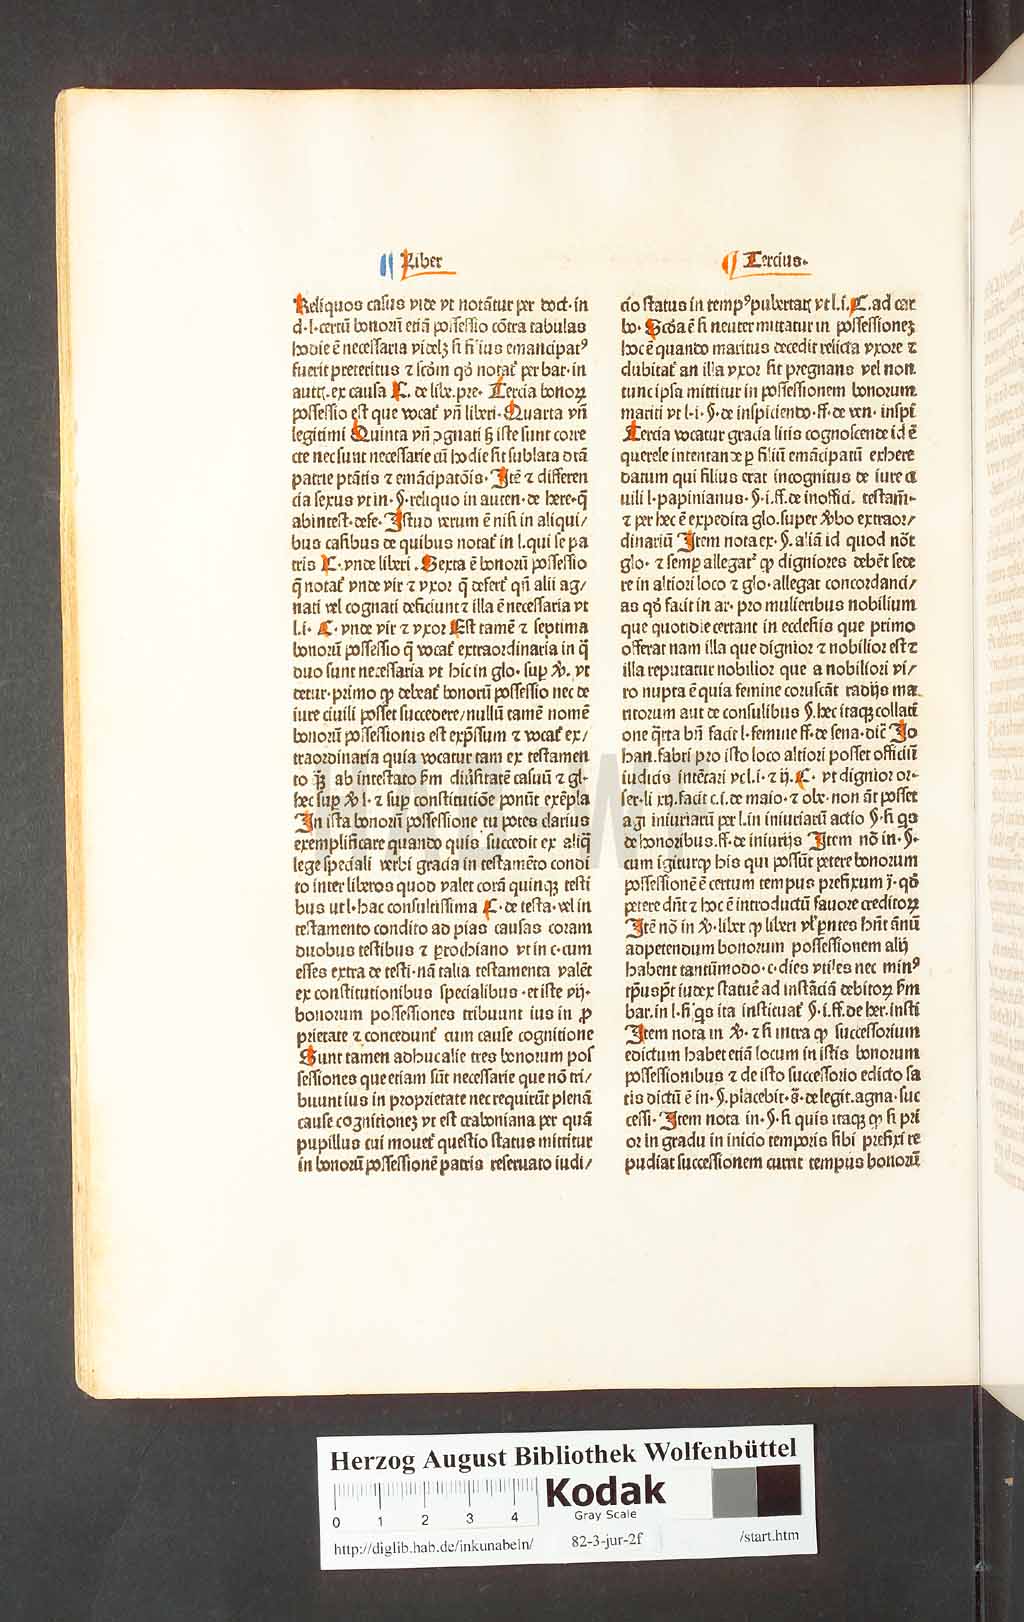 Liber
Tercius.
Reliquos casus vide vt notãtur per doct. in
d. l. certũ bonorũ etiã possessio cõtra tabulas
hodie ẽ necessaria videlꝫ si fili͛ ius emancipatꝰ
fuerit preteritus ⁊ scd̃m qd̃ notat͛ per bar. in
autꝭ. ex causa C. de libe. pre. Tercia bonoꝝ
possessio est que vocat͛ vñ liberi. Quarta vñ
legitimi Quinta vñ ꝯgnati sꝫ iste sunt corre
cte nec sunt necessarie cũ hodie sit sublata dr̃ã
patrie ptãtis ⁊ emãcipatõis. Itẽ ⁊ differen
cia sexus vt in. §. reliquo in auten. de here. q̃
abintest. defe. Istud verum ẽ nisi in aliqui/
bus casibus de quibus notat͛ in l. qui se pa
tris C. vnde liberi. Sexta ẽ bonorũ possessio
q̃ notat͛ vnde vir ⁊ vxor q̃ defert͛ qñ alii ag/
nati vel cognati deficiunt ⁊ illa ẽ necessaria vt
l.i. C. vnde vir ⁊ vxor Est tamẽ ⁊ septima
bonorũ possessio q̃ vocat͛ extraordinaria in q̃
duo sunt necessaria vt hic in glo. sup ꝟ. vt
detur. primo ꝙ debeat͛ bonorũ possessio nec de
iure ciuili posset succedere/ nullũ tamẽ nomẽ
bonorũ possessionis est exp̃ssum ⁊ vocat͛ ex/
traordinaria quia vocatur tam ex testamen
to q̃ꝫ ab intestato ẜm diu͛sitatẽ casuũ ⁊ gl.
hec sup ꝟ l. ⁊ sup constitutiõe ponũt exẽpla
In ista bonorũ possessione tu potes clarius
exemplificare quando quis succedit ex aliq̃
lege speciali verbi gracia in testamẽto condi
to inter liberos quod valet corã quinqꝫ testi
bus ut l. hac consultissima C. de testa. vel in
testamento condito ad pias causas coram
duobus testibus ⁊ ꝑrochiano vt in c. cum
esses extra de testi. nã talia testamenta valẽt
ex constitutionibus specialibus. et iste vij.
bonorum possessiones tribuunt ius in ꝓ
prietate ⁊ concedunt͛ cum cause cognitione
Sunt tamen adhuc alie tres bonorum pos
sessiones que etiam sũt necessarie que nõ tri/
buunt ius in proprietate nec requirũt plenã
cause cognitionẽ vt est carboniana per quã
pupillus cui mouet͛ questio status mittitur
in bonorũ possessionẽ patris reseruato iudi/
cio status in tempꝰ pubertatꝭ vt l.i. C. ad car
bo. Scd̃a ẽ si neuter mittatur in possessionẽ
hoc ẽ quando maritus decedit relicta vxore ⁊
dubitat͛ an illa vxor sit pregnans vel non
tunc ipsa mittitur in possessionem bonorum
mariti vt l. i. §. de inspiciendo. ff. de ven. inspi͛
Tercia vocatur gracia litis cognoscende id ẽ
querele intentande ꝑ filiũ emãcipatũ exhere
datum qui filius erat incognitus de iure ci
uili l. papinianus. §. i. ff. de inoffici. testam̃.
⁊ per hec ẽ expedita glo. super ꝟbo extraor/
dinariũ Item nota ex. §. aliã id quod nõt
glo. ⁊ semꝑ allegat͛ ꝙ digniores debẽt sede
re in altiori loco ⁊ glo. allegat concordanci/
as qd̃ facit in ar. pro mulieribus nobilium
que quotidie certant in ecclesiis que primo
offerat nam illa que dignior ⁊ nobilior est ⁊
illa reputatur nobilior que a nobiliori vi/
ro nupta ẽ quia femine coruscãt radijs ma
ritorum aut de consulibus §. hec itaqꝫ collati
one q̃rta bñ facit l. femine ff. de sena. dic̃ Jo
han. fabri pro isto loco altiori posset officiũ
iudicis intẽtari vt l. i. ⁊ ij. C. vt dignior or.
ser. li xij. facit c. i. de maio. ⁊ obe. non añt posset
agi iniuriarũ per l. in iniuriarũ actio §. si qs
de honoribus. ff. de iniurijs Item nõ in. §.
cum igitur ꝙ his qui possũt petere bonorum
possessionẽ ẽ certum tempus prefixum j. qd̃
petere dñt ⁊ hoc ẽ introductũ fauore creditoꝝ
Itẽ nõ in ꝟ. liber ꝙ liberi vl͛ ꝑntes hñt ãnũ
ad petendum bonorum possessionem alij
habent tantũmodo. c. dies vtiles nec minꝰ
tp̃us pt͛ iudex statue͛ ad instãciã debitoꝝ ẜm
bar. in l. si qs ita instituat͛ §. i. ff. de her. insti
Item nota in ꝟ. ⁊ si intra ꝙ successorium
edictum habet etiã locum in istis bonorum
possessionibus ⁊ de isto successorio edicto sa
tis dictũ ẽ in. §. placebit. s̃. de legit. agna. suc
cessi. Item nota in. §. si quis itaqꝫ ꝙ si pri
or in gradu in inicio temporis sibi prefixi re
pudiat successionem currit tempus bonorũ
Herzog August Bibliothek Wolfenbüttel
0 1 2 3 4
Kodak
Gray Scale
http://diglib.hab.de/inkunabeln/ 82-3-jur-2f /start.htm